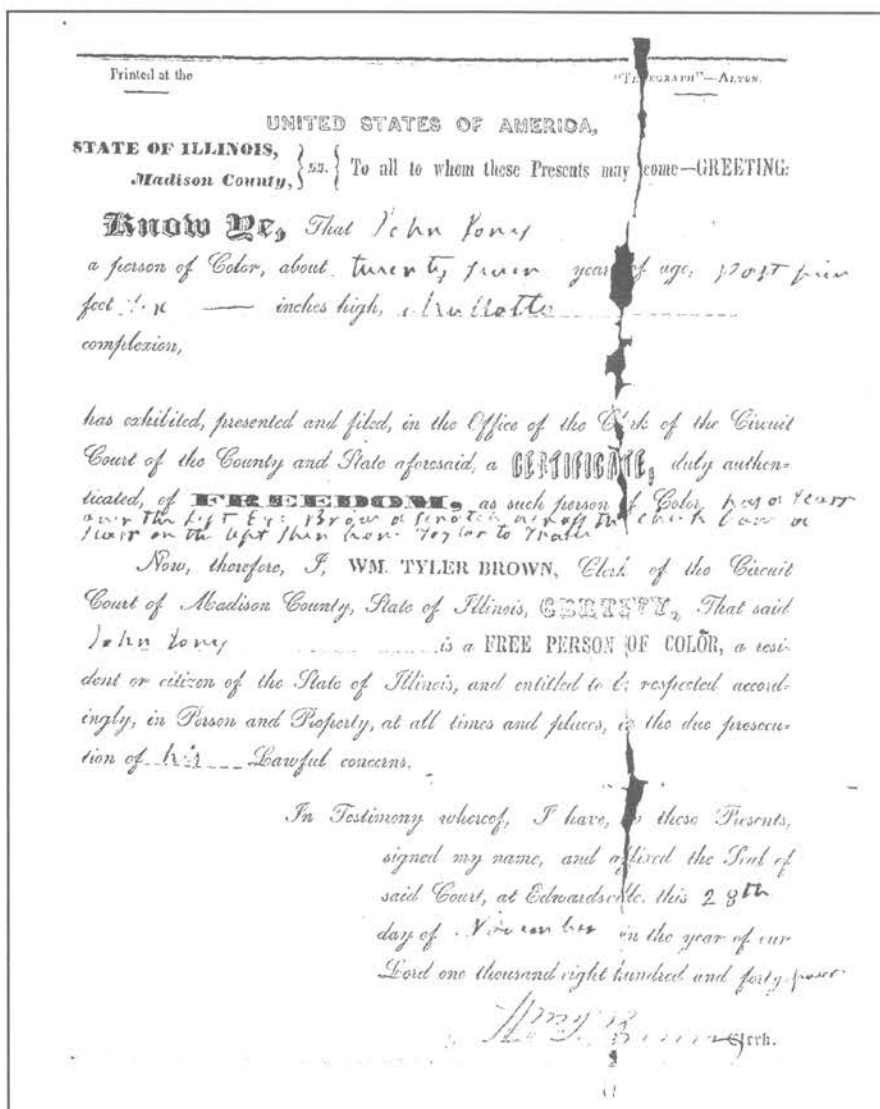 Printed at the "TELEGRAPH"—ALTON.
UNITED STATES OF AMERICA,
STATE OF ILLINOIS,
Madison County, } ss. { To all to whom these Presents may come—GREETING:
Know Ye, That John Jones
a person of Color, about twenty seven years of age, five
feet inches high, Mullatto
complexion,
has exhibited, presented and filed, in the Office of the Clerk of the Circuit
Court of the County and State aforesaid, a CERTIFICATE, duly authen-
ticated, of FREEDOM, as such person of Color has a Scarr
over the Left Eye Brow a Scratch across the cheek bone a
Scarr on the left Shin bone Taylor to Trade
Now, therefore, I, WM. TYLER BROWN, Clerk of the Circuit
Court of Madison County, State of Illinois, CERTIFY, That said
John Jones is a FREE PERSON OF COLOR, a resi-
dent or citizen of the State of Illinois, and entitled to be respected accord-
ingly, in Person and Property, at all times and places, in the due prosecu-
tion of his Lawful concerns.
In Testimony whereof, I have, to these Presents,
signed my name, and affixed the Seal of
said Court, at Edwardsville, this 28th
day of November in the year of our
Lord one thousand eight hundred and forty-four
Clerk.